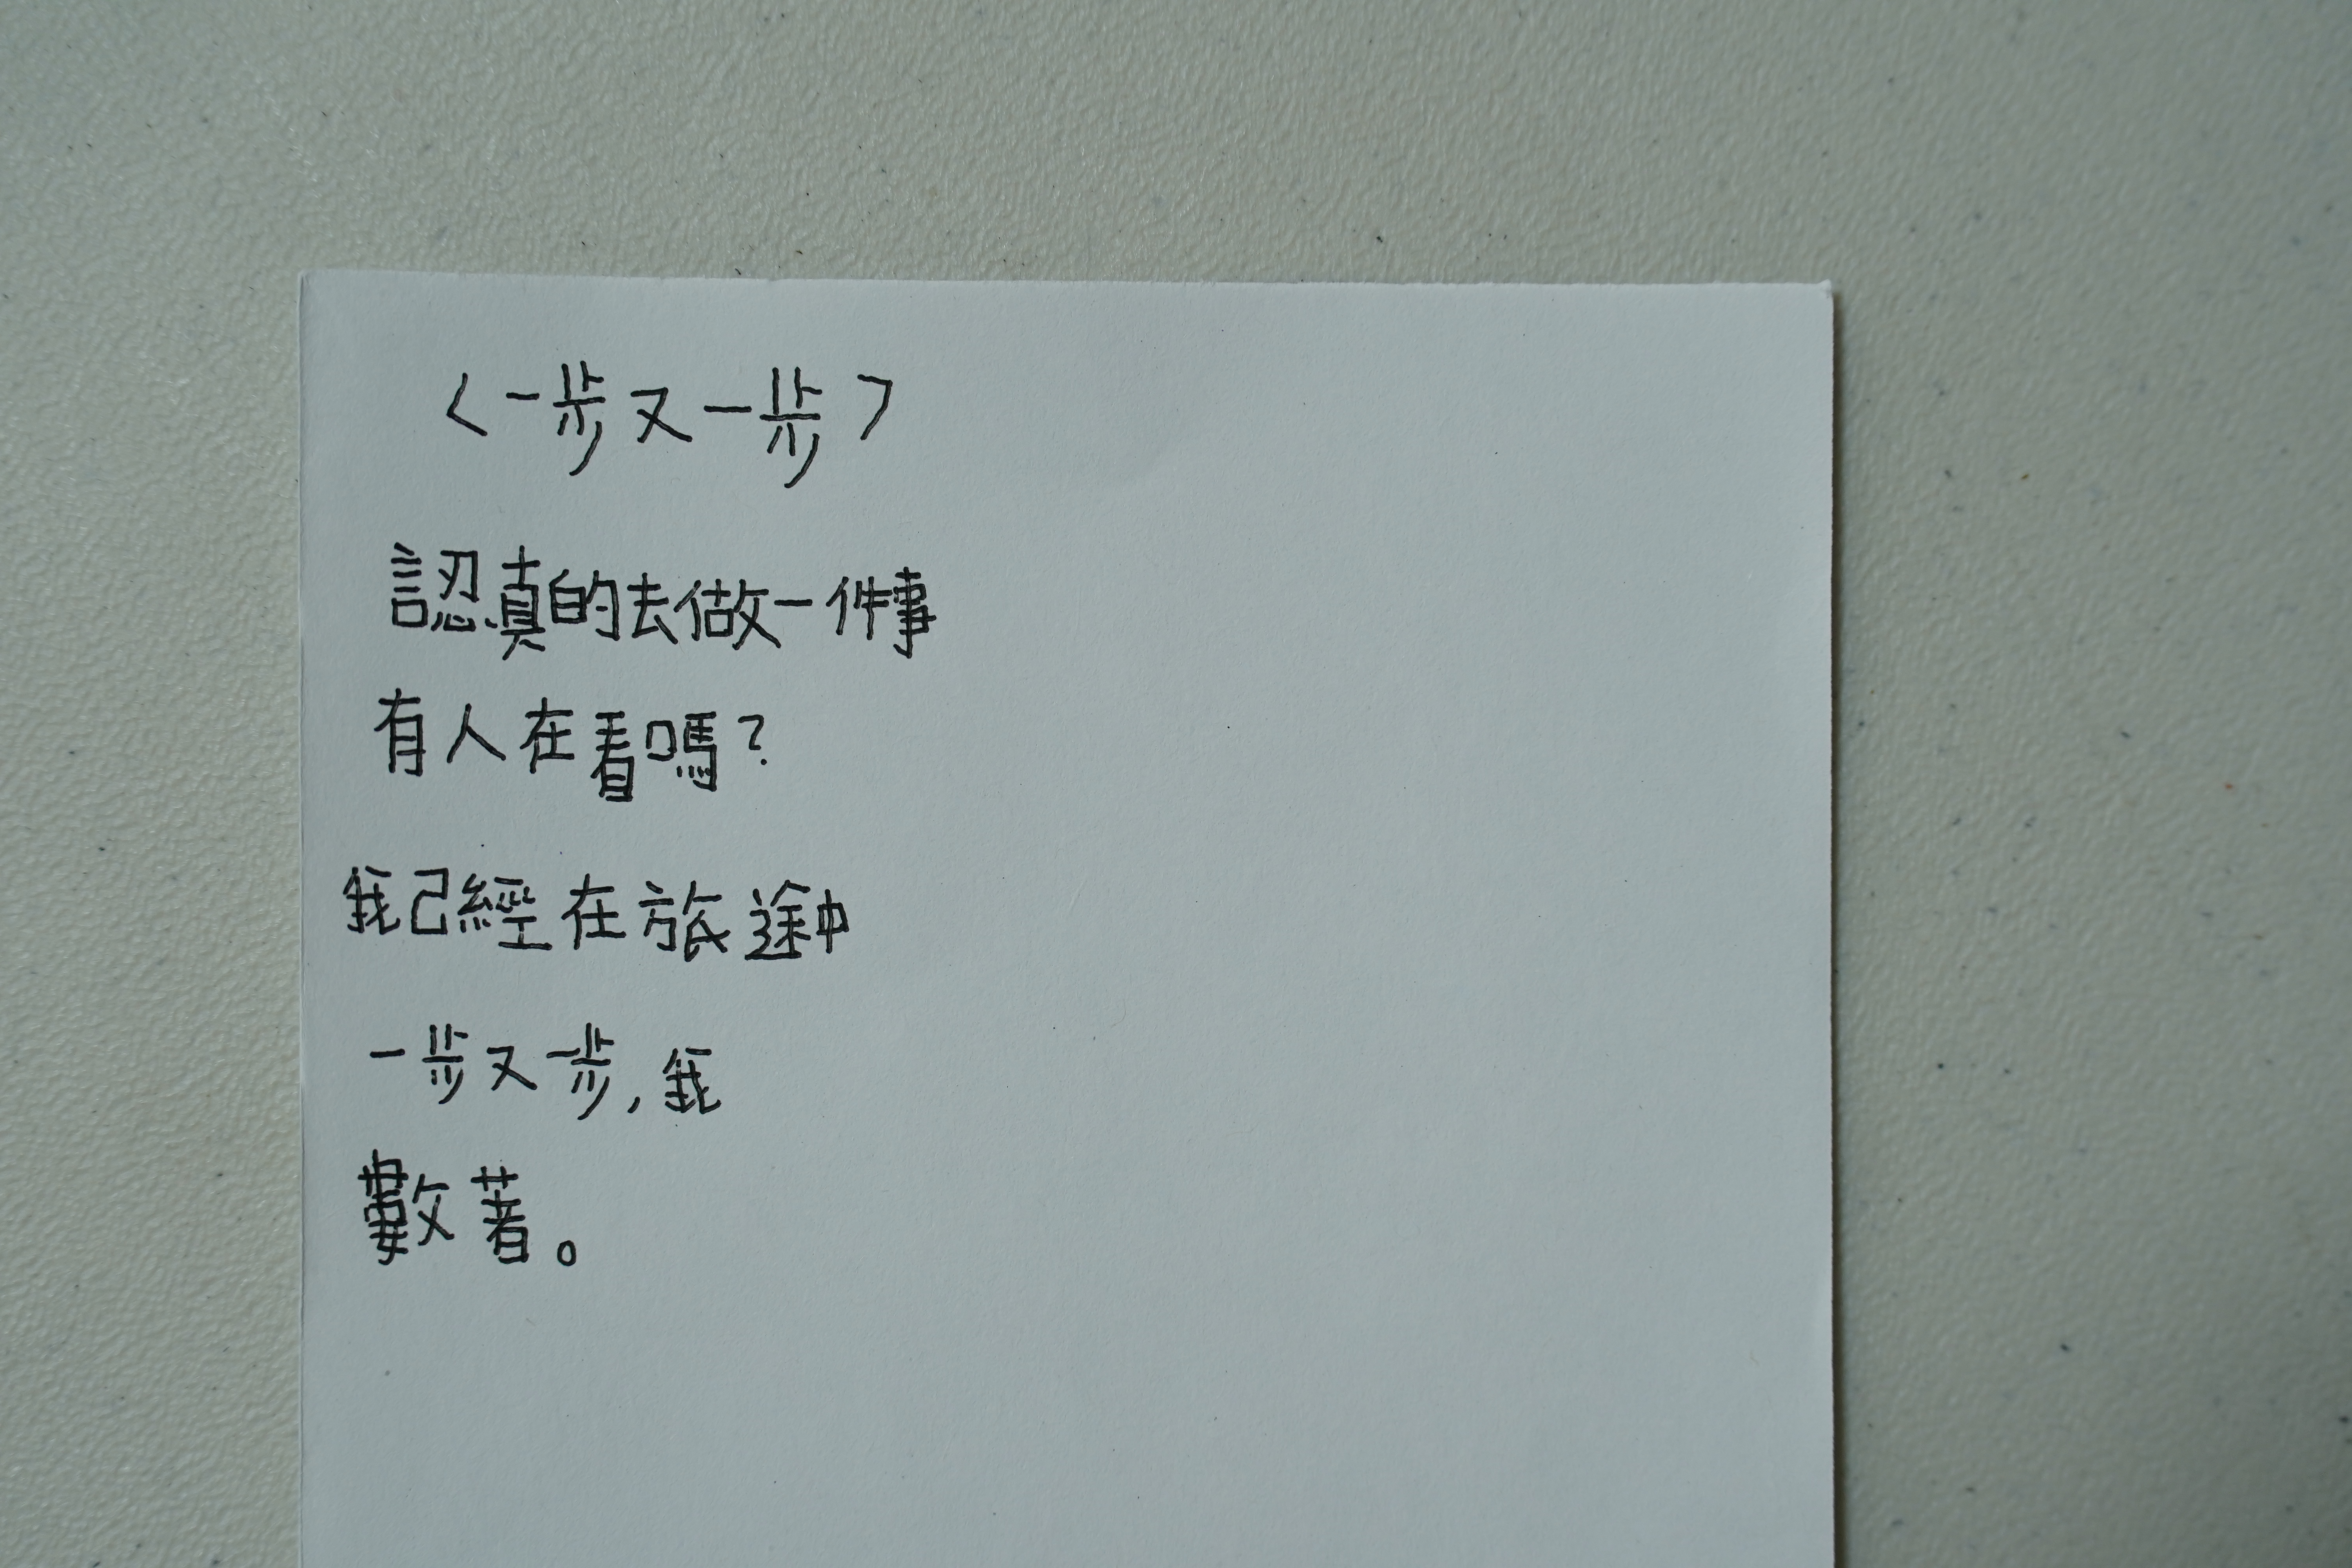 〈一步又一步〉
認真的去做一件事
有人在看嗎?
我已經在旅途中
一步又一步,我
數著。